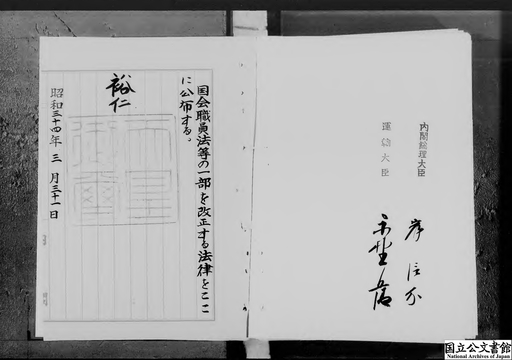 国会職員法等の一部を改正する法律をここ
に公布する。
裕仁
天皇
御璽
昭和三十四年三月三十一日
内閣総理大臣
岸信介
運輸大臣
国立公文書館
National Archives of Japan